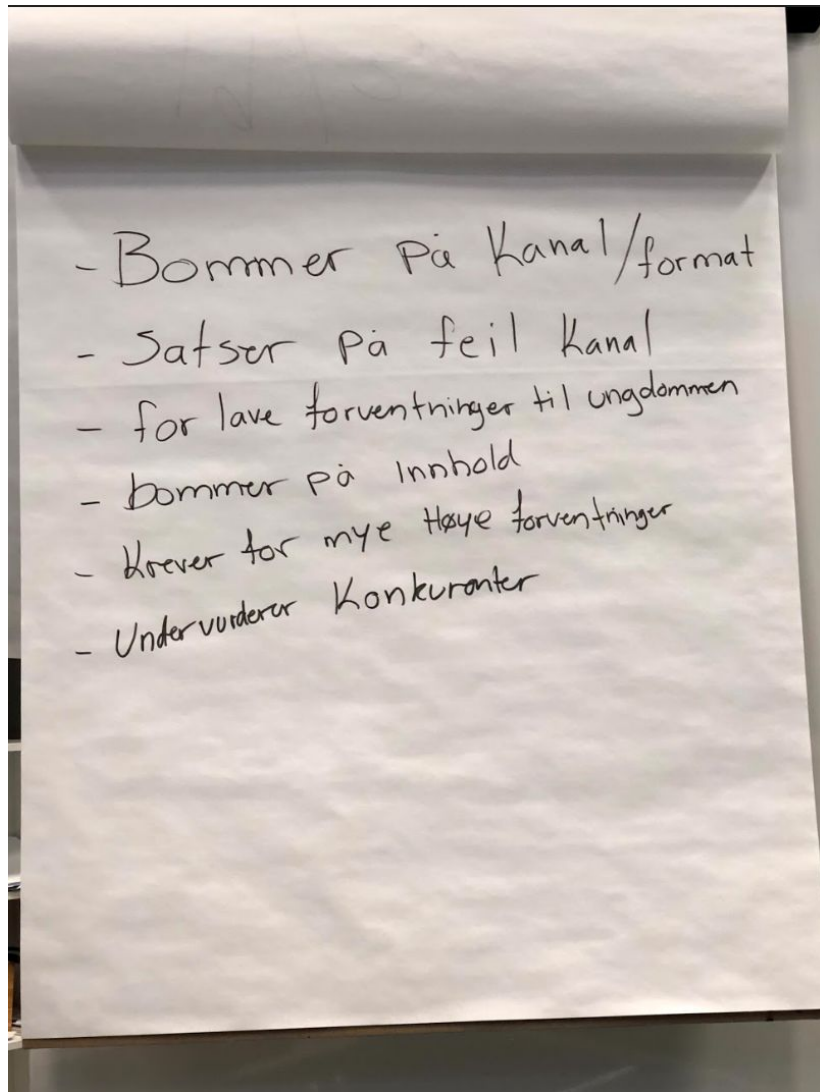 - Bommer på Kanal/format
- Satser på feil Kanal
- for lave forventninger til ungdommen
- bommer på innhold
- Krever for mye Høye forventninger
- Undervurderer Konkuranter